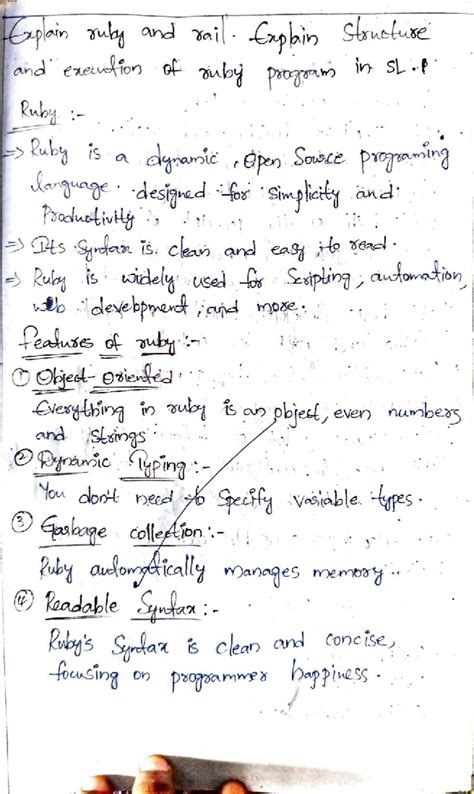 Explain ruby and rail. Explain Structure
and execution of ruby program in SL.
Ruby :-
⇒ Ruby is a dynamic, Open Source programing
language. designed for simplicity and
Productivity
⇒ Its Syntax is clean and easy to read.
⇒ Ruby is widely used for Scripting, automation,
web development, and more.
features of ruby :-
① Object-Oriented
Everything in ruby is an object, even numbers
and Strings
② Dynamic Typing :-
You don't need to Specify variable types.
③ Garbage collection :-
Ruby automatically manages memory..
④ Readable Syntax :-
Ruby's Syntax is clean and concise,
focusing on programmer happiness.